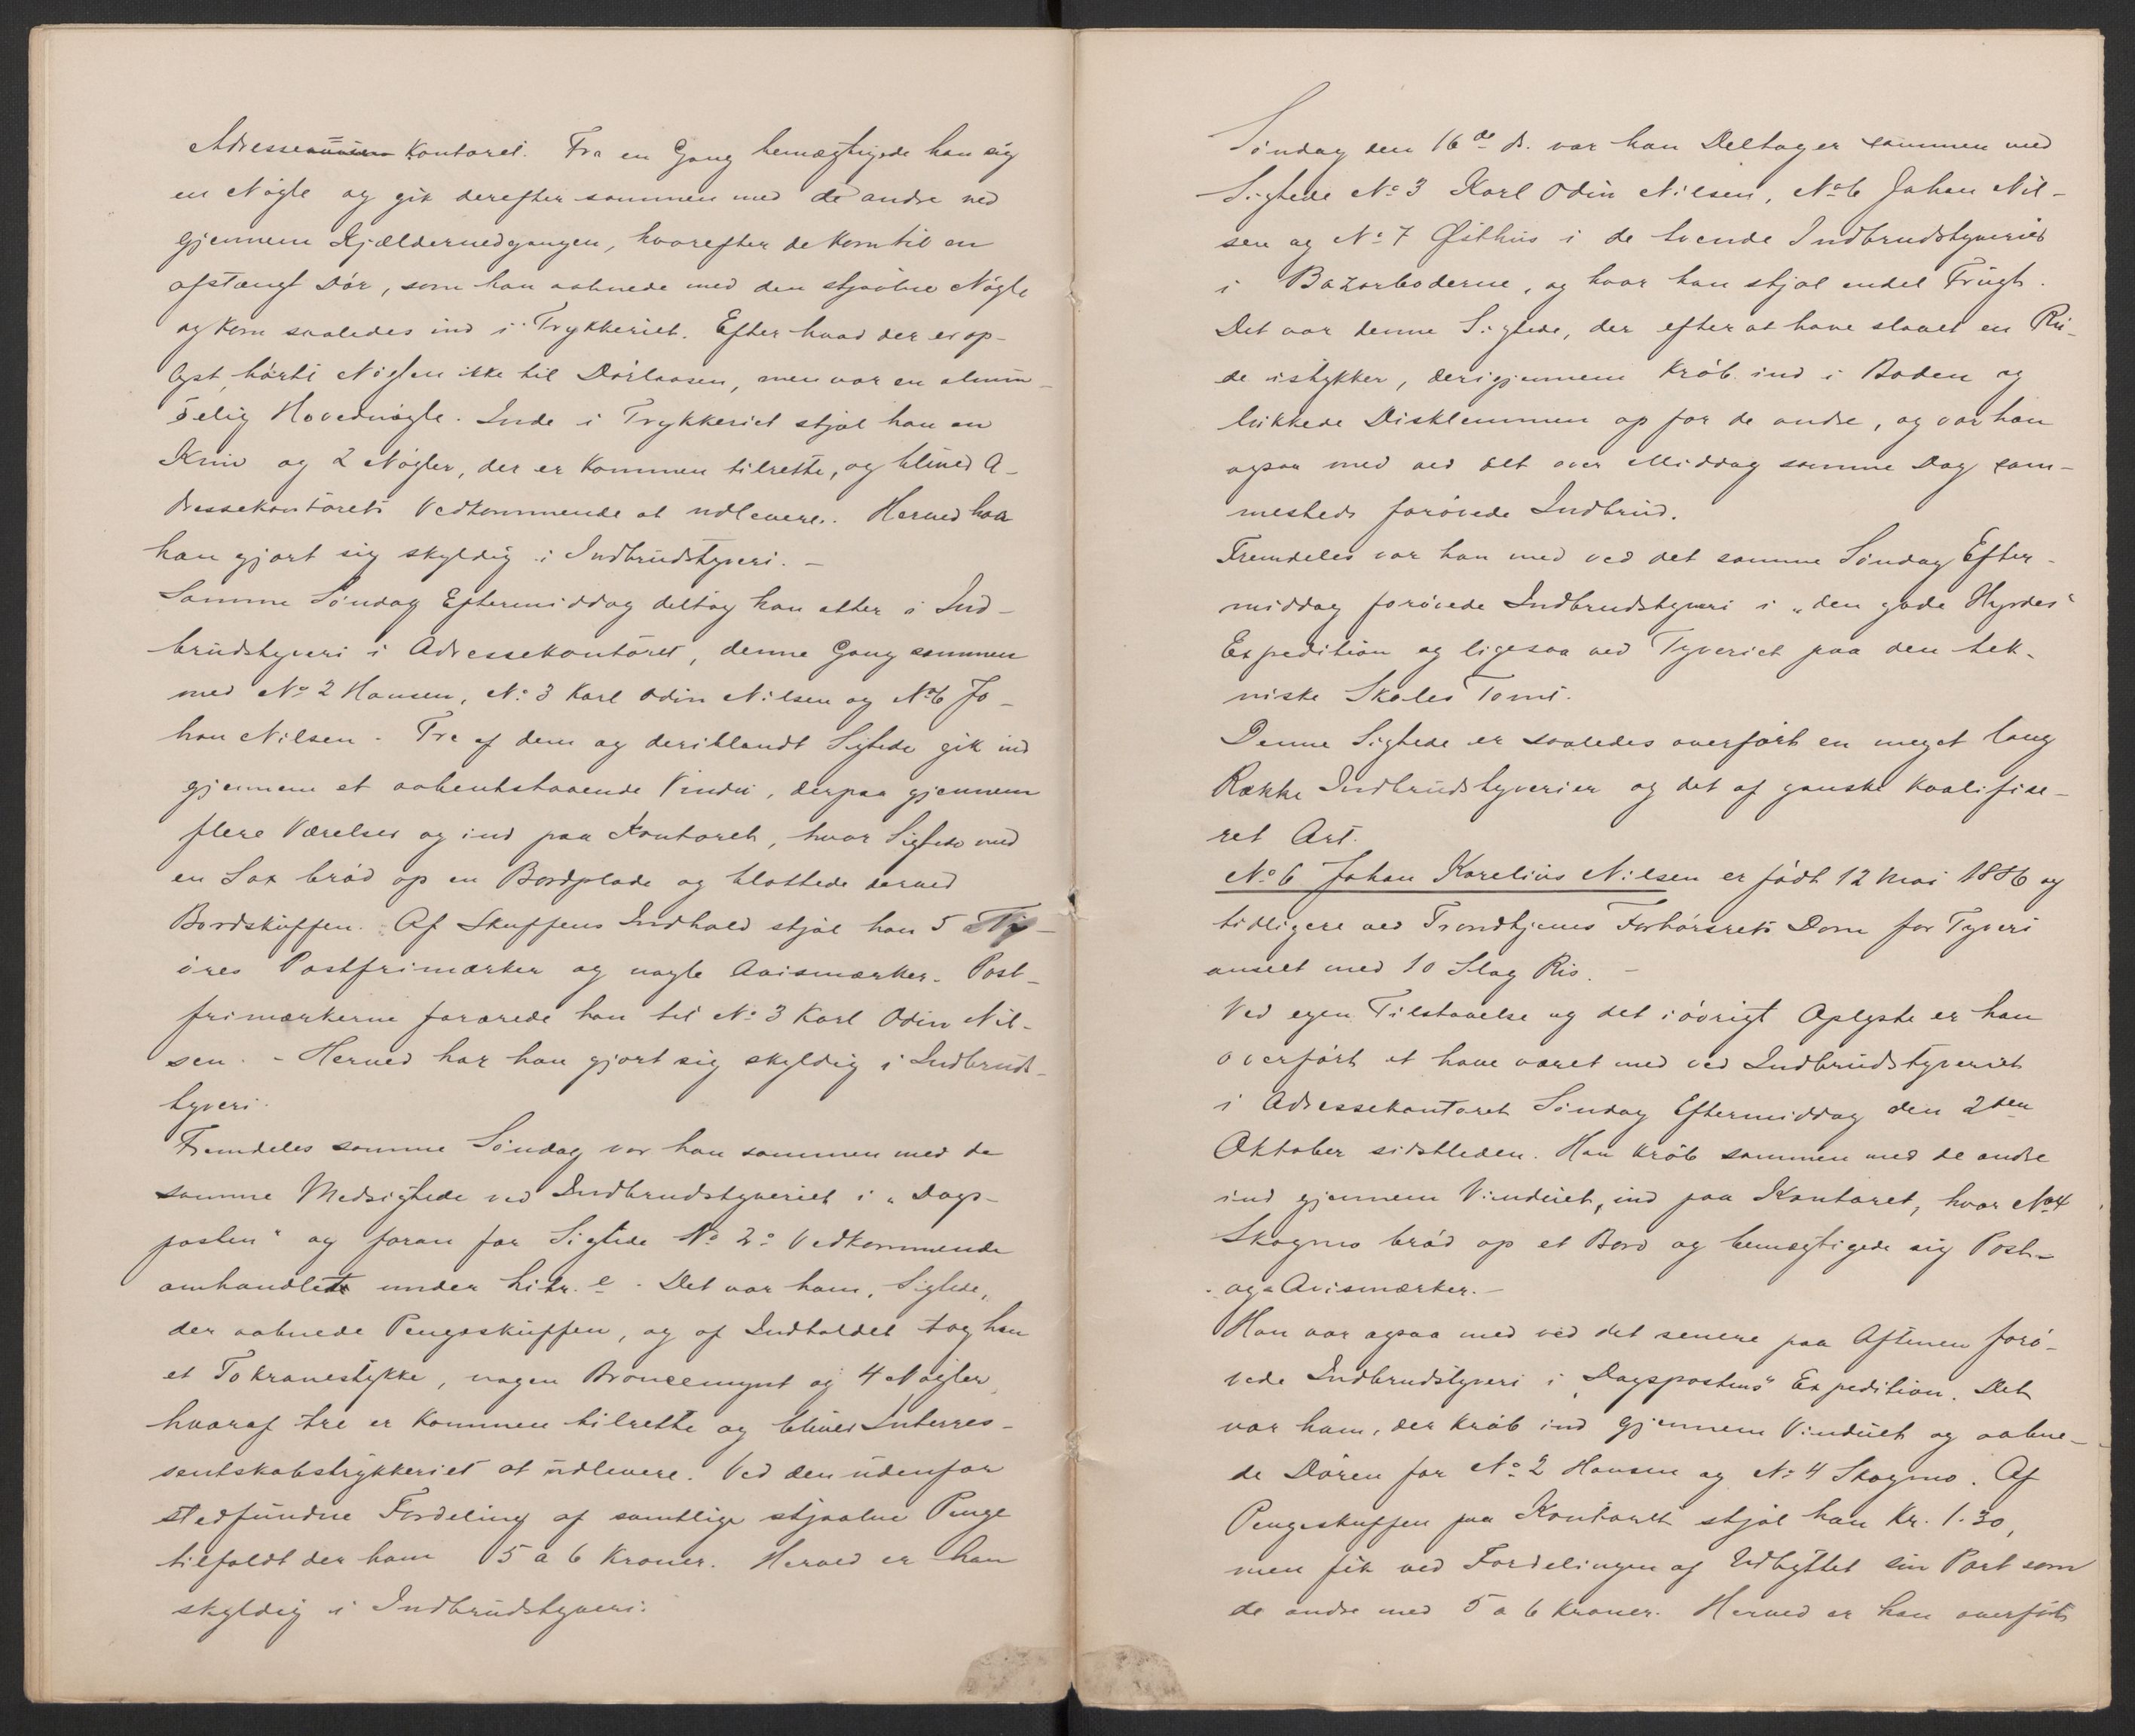 Adresse Kontoret. Fra en Gang bemægtigede han sig
en Nøgle og gik derefter sammen med de andre ned
gjennem Kjældernedgangen, hvorefter de kom til en
afstængt Dør, som han aabnede med den stjaalne Nøgle
og kom saaledes ind i Trykkeriet. Efter hvad der er op-
lyst, hørte Nøglen ikke til Dørlaasen, men var en almin-
delig Hovednøgle. Inde i Trykkeriet stjal han en
Kniv og 2 Nøgler, der er kommen tilrette, og bliver A-
dressekontorets Vedkommende at udlevere. Herved har
han gjort sig skyldig i Indbrudstyveri. -
Samme Søndag Eftermiddag deltog han atter i Ind-
brudstyveri i Adressekontoret, denne Gang sammen
med No 2 Hansen, No 3 Karl Odin Nilsen og No 6 Jo-
han Nilsen - Tre af dem og deriblandt Sigtede gik ind
gjennem et aabentstaaende Vindu, derpaa gjennem
flere Værelser og ind paa Kontoret, hvor Sigtede med
en Sax brød op en Bordplade og blottede derved
Bordskuffen. Af Skuffens Indhold stjal han 5
øres Postfrimærker og nogle Avismærker. Post-
frimærkerne forærede han til No 3 Karl Odin Nil-
sen. - Herved har han gjort sig skyldig i Indbruds-
tyveri.
Fremdeles samme Søndag var han sammen med de
samme Medsigtede ved Indbrudstyveriet i „Dags-
posten“ og foran for Sigtede No 2s Vedkommende
omhandlet under Litr. e. Det var ham, Sigtede,
der aabnede Pengeskuffen, og af Indholdet tog han
et Tokronestykke, nogen Broncemynt og 4 Nøgler,
hvoraf tre er kommen tilrette og bliver Interres-
sentskabstrykkeriet at udlevere. Ved den udenfor
stedfundne Fordeling af samtlige stjaalne Penge
tilfaldt der ham 5 a 6 Kroner. Herved er han
skyldig i Indbrudstyveri.
Søndag den 16de ds. var han Deltager sammen med
Sigtede No 3 Karl Odin Nilsen, No 6 Johan Nil-
sen og No 7 Østhus i de tvende Indbrudstyverier
i Bazarboderne, og hvor han stjal endel Frugt.
Det var denne Sigtede, der efter at have slaaet en Ru-
de istykker, derigjennem krøb ind i Boden og
lukkede Disklemmen op for de andre, og var han
ogsaa med ved det over Middag samme Dag sam-
mesteds forøvede Indbrud.
Fremdeles var han med ved det samme Søndag Efter-
middag forøvede Indbrudstyveri i „den gode Hyrdes“
Expedition og ligesaa ved Tyveriet paa den tek-
niske Skoles Tomt.
Denne Sigtede er saaledes overført en meget lang
Række Indbrudstyverier og det af ganske kvalifise-
ret Art.
No 6 Johan Karelius Nilsen er født 12 Mai 1886 og
tidligere ved Trondhjems Forhørsrets Dom for Tyveri
anseet med 10 Slag Ris. -
Ved egen Tilstaaelse og det iøvrigt Oplyste er han
overført at have været med ved Indbrudstyveriet
i Adressekontoret Søndag Eftermiddag den 2den
Oktober sidstleden. Han krøb sammen med de andre
ind gjennem Vinduet, ind paa Kontoret, hvor No 4
Skogmo brød op et Bord og bemægtigede sig Post-
og Avismærker. -
Han var ogsaa med ved det senere paa Aftenen forø-
vede Indbrudstyveri i „Dagspostens“ Expedition. Det
var ham, der krøb ind gjennem Vinduet og aabne-
de Døren for No 2 Hansen og No 4 Skogmo. Af
Pengeskuffen paa Kontoret stjal han Kr. 1.30,
men fik ved Fordelingen af Udbyttet sin Part som
de andre med 5 a 6 Kroner. Herved er han overført